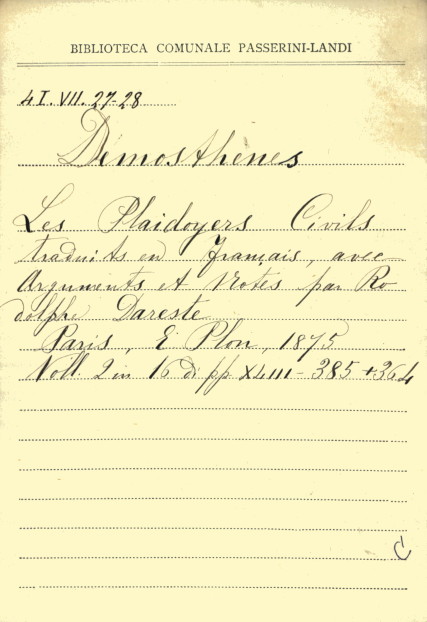 BIBLIOTECA COMUNALE PASSERINI-LANDI
4 I. VII. 27-28
Demosthenes
Les Plaidoyers Civils
traduits en français, avec
Arguments et Notes par Ro
dolphe Dareste
Paris, E Plon, 1875
Voll. 2 in 16 di pp XLIII - 385 + 364
C